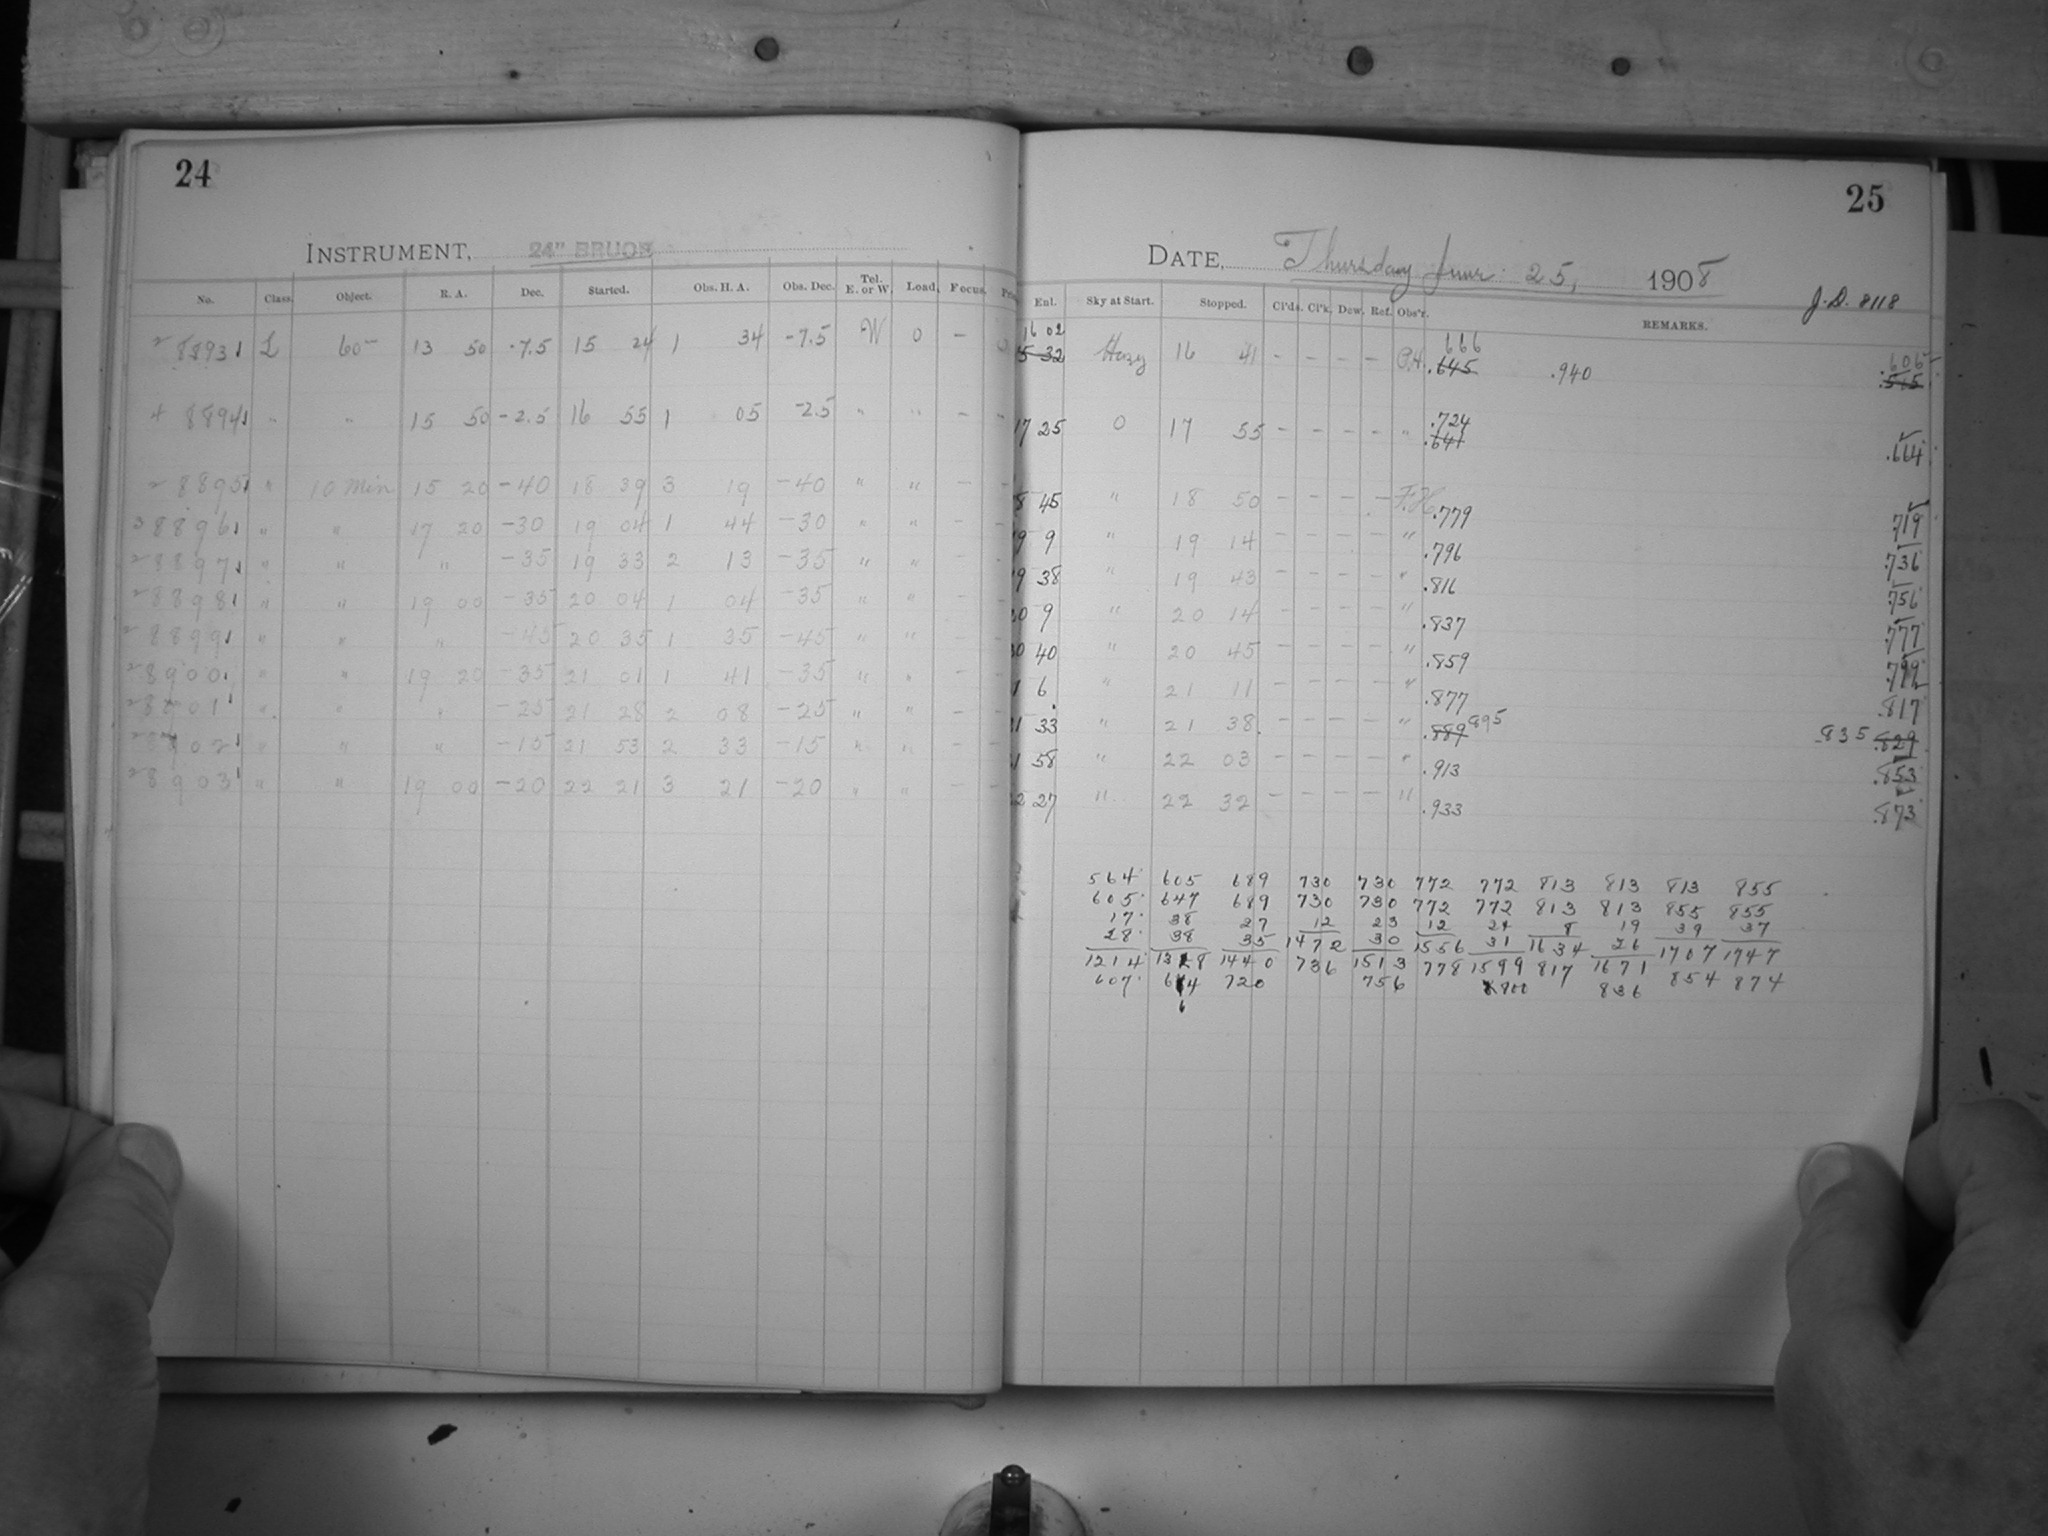 24
INSTRUMENT, 24" BRUCE
No. Class. Object. R. A. Dec. Started. Obs. H. A. Obs. Dec. Tel. E. or W. Load. Focus.
8893 L 60 13 50 -7.5 15 24 1 34 -7.5 W 0 -
8894 " " 15 50 -2.5 16 55 1 05 -2.5 " " - -
8895 " 10 Min 15 20 -40 18 39 3 19 -40 " " - -
8896 " " 17 20 -30 19 04 1 44 -30 " " - -
8897 " " " -35 19 33 2 13 -35 " " - -
8898 " " 19 00 -35 20 04 1 04 -35 " " - -
8899 " " " -45 20 35 1 35 -45 " " - -
8900 " " 19 20 -35 21 01 1 41 -35 " " - -
8901 " " " -25 21 28 2 08 -25 " " - -
8902 " " " -15 21 53 2 33 -15 " " - -
8903 " " 19 00 -20 22 21 3 21 -20 " " - -
25
DATE, Thursday June 25, 1908
J.D. 8118
Enl. Sky at Start. Stopped. Cl'ds. Cl'k. Dew. Ref. Obs'r. REMARKS.
16 02 666 .606
5 32 Hazy 16 41 - - - - .645 .940 .585
.724
17 25 0 17 55 - - - - " .641 .664
8 45 " 18 50 - - - - F.H. .779 .719
9 9 " 19 14 - - - - " .796 .736
9 38 " 19 43 - - - - " .816 .756
20 9 " 20 14 - - - - " .837 .777
40 " 20 45 - - - - " .859 .799
6 " 21 11 - - - - " .877 .817
21 33 " 21 38 - - - - " .889 895 .835 .829
58 " 22 03 - - - - " .913 .853
22 27 " 22 32 - - - - " .933 .873
564 605 689 730 730 772 772 813 813 813 855
605 647 689 730 730 772 772 813 813 855 855
17 38 27 12 23 12 24 8 19 39 37
28 38 35 1472 30 1556 31 1634 26 1707 1747
1214 1328 1440 736 1513 778 1599 817 1671 854 874
607 664 720 756 800 836
6